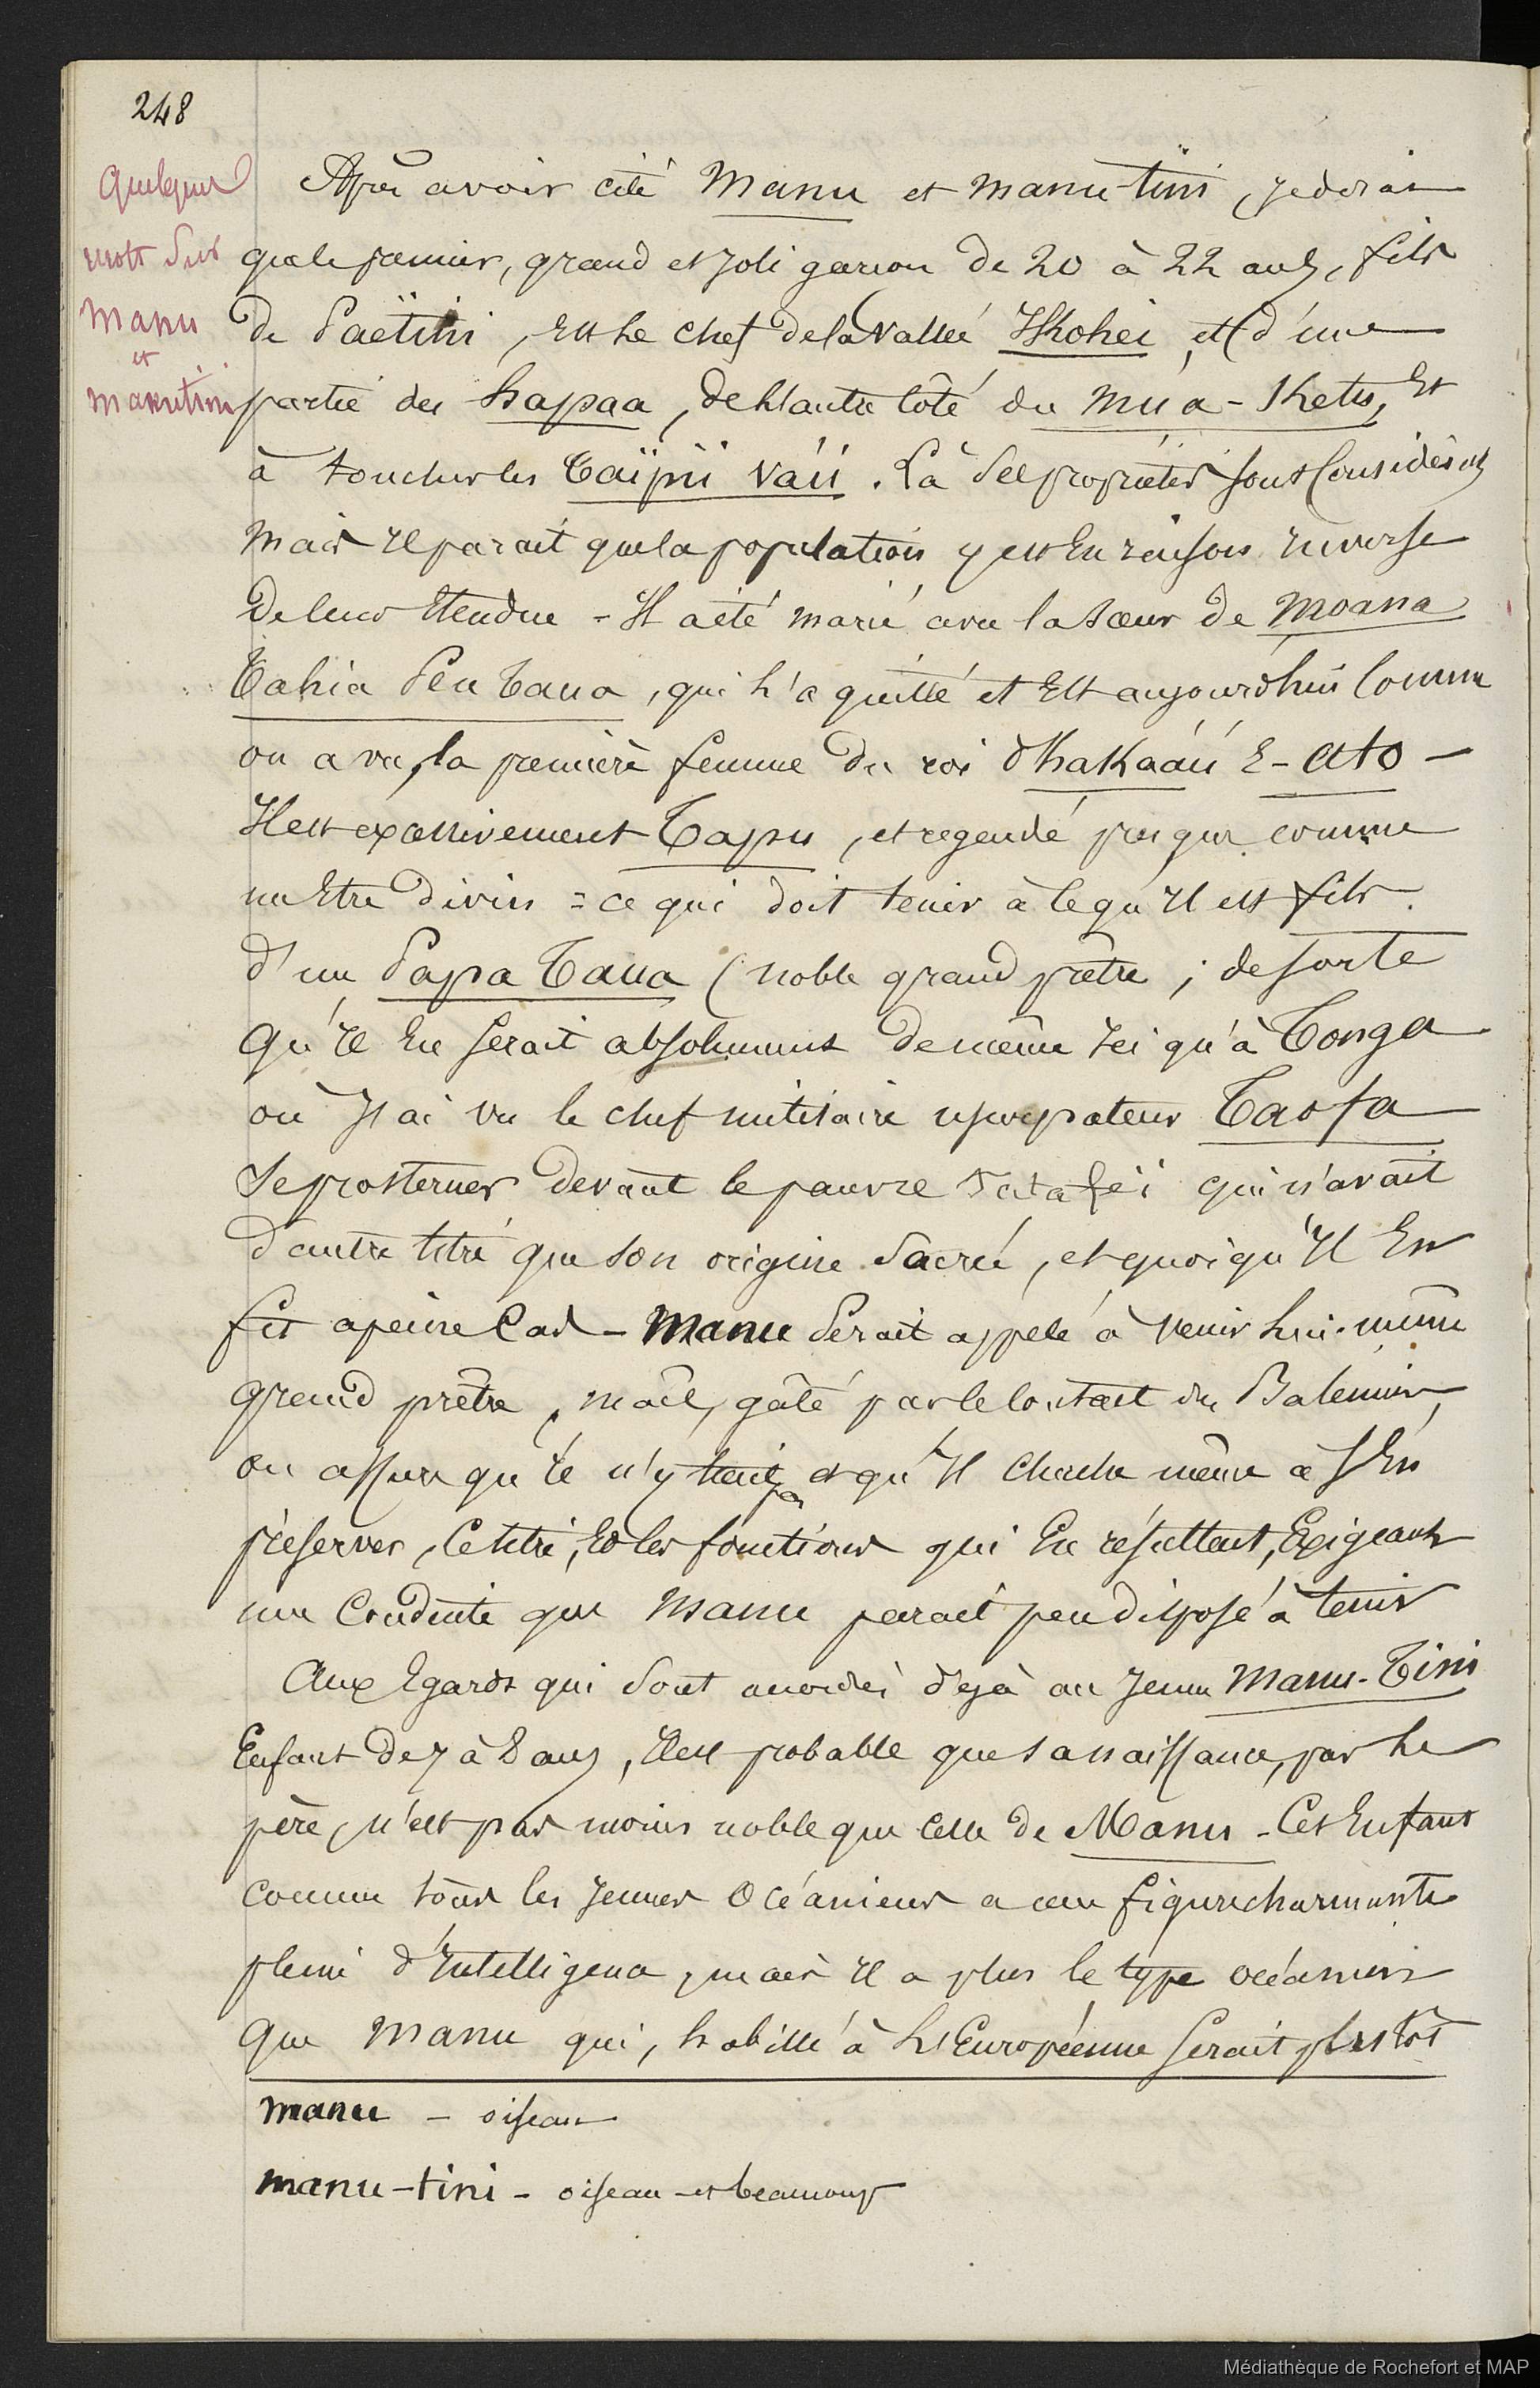 248
Quelques
mots sur
Manu
et
Manutini
Après avoir cité Manu et Manu-tini, je dirai
que le premier, grand et joli garçon de 20 à 22 ans, fils
de Paëtini, est le chef de la vallée Hkohei, et d'une
partie des hapaa, de l'autre côté du Múa-Ketu, et
à toucher les Taïpïi Váïi. Là ses propriétés sont considérables
mais il parait que la population y est en raison inverse
de leur étendue - Il a été marié avec la sœur de Moana
Tahia Peu Taua, qui l'a quitté et est aujourd'hui comme
on a vu, la première femme du roi d'hakaáú E-Ato -
Il est excessivement Tapu, et regardé presque comme
un Etre divin = ce qui doit tenir à ce qu'il est fils
d'un Papa Taua (noble grand prêtre ; de sorte
qu'il en serait absolument de même ici qu'à Tonga
où j'ai vu le chef militaire usurpateur Taofa
se prosterner devant le pauvre Tataféi qui n'avait
d'autre titre que son origine sacrée, et quoiqu'il en
fit à peine cas - Manu serait appelé à venir lui-même
grand prêtre, mais, gâté par le contact des Baleiniers,
on assure qu'il n'y tient pas et qu'il cherche même à s'en
préserver, ce titre, et les fonctions qui en résultent, exigeant
une conduite que Manu parait peu disposé à tenir
Aux égards qui sont accordés déjà au jeune Manu-Tini
Enfant de 7 à 8 ans, il est probable que sa naissance, par le
père, n'est pas moins noble que celle de Manu - Cet Enfant
comme tous les jeunes Océaniens a une figure charmante
pleine d'Intelligence, mais il a plus le type océanien
que Manu qui, habillé à l'Européenne serait plustôt
manu - oiseau
manu-tini - oiseau - et beaucoup
Médiathèque de Rochefort et MAP